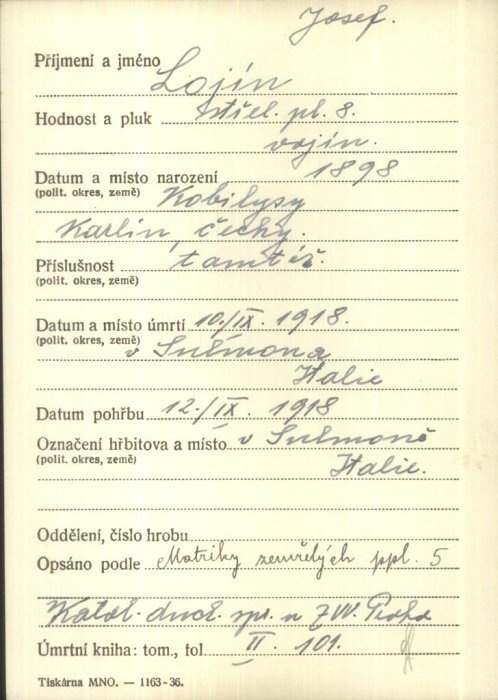 Josef.
Příjmení a jméno Lojín
Hodnost a pluk střel. pl. 8.
vojín.
Datum a místo narození 1898
(polit. okres, země) Kobilysy
Karlín, čechy.
Příslušnost tamtéž.
(polit. okres, země)
Datum a místo úmrtí 10./IX. 1918.
(polit. okres, země) v
Italie
Datum pohřbu 12./IX. 1918
Označení hřbitova a místo v
(polit. okres, země) Italie.
Oddělení, číslo hrobu
Opsáno podle Matriky zemřelých ppl. 5
Katol. duch. spr. u ZVV. Praha
Úmrtní kniha: tom., fol II. 101.
Tiskárna MNO. — 1163-36.